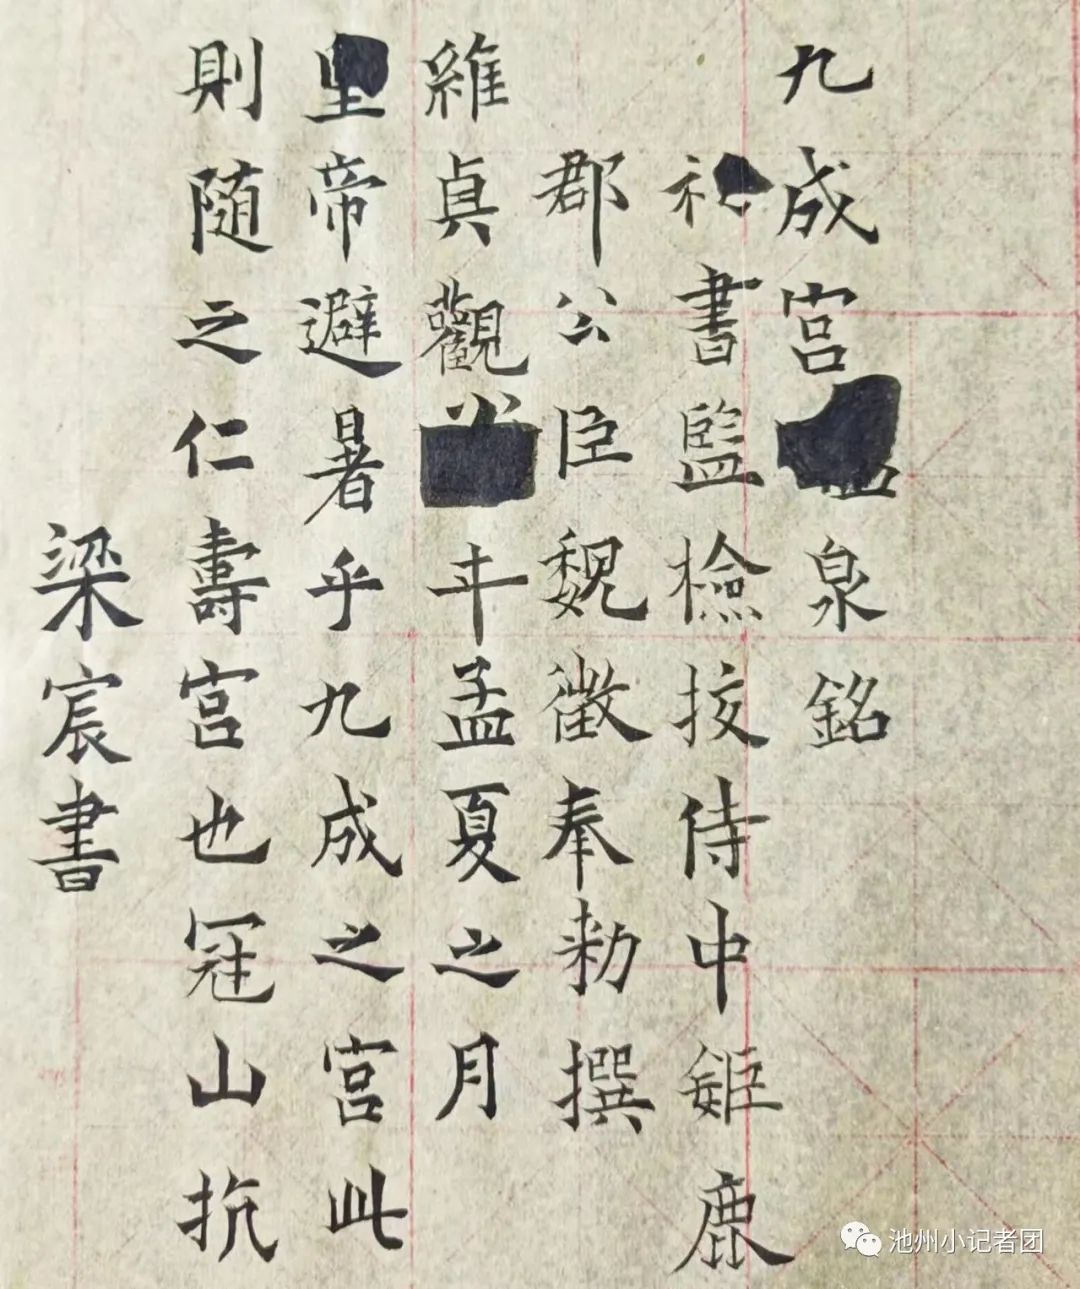 九成宫泉銘
書監檢挍侍中鉅鹿
郡公臣魏徵奉勑撰
維貞觀年孟夏之月
皇帝避暑乎九成之宫此
則随之仁壽宫也冠山抗
梁宸書
池州小记者团